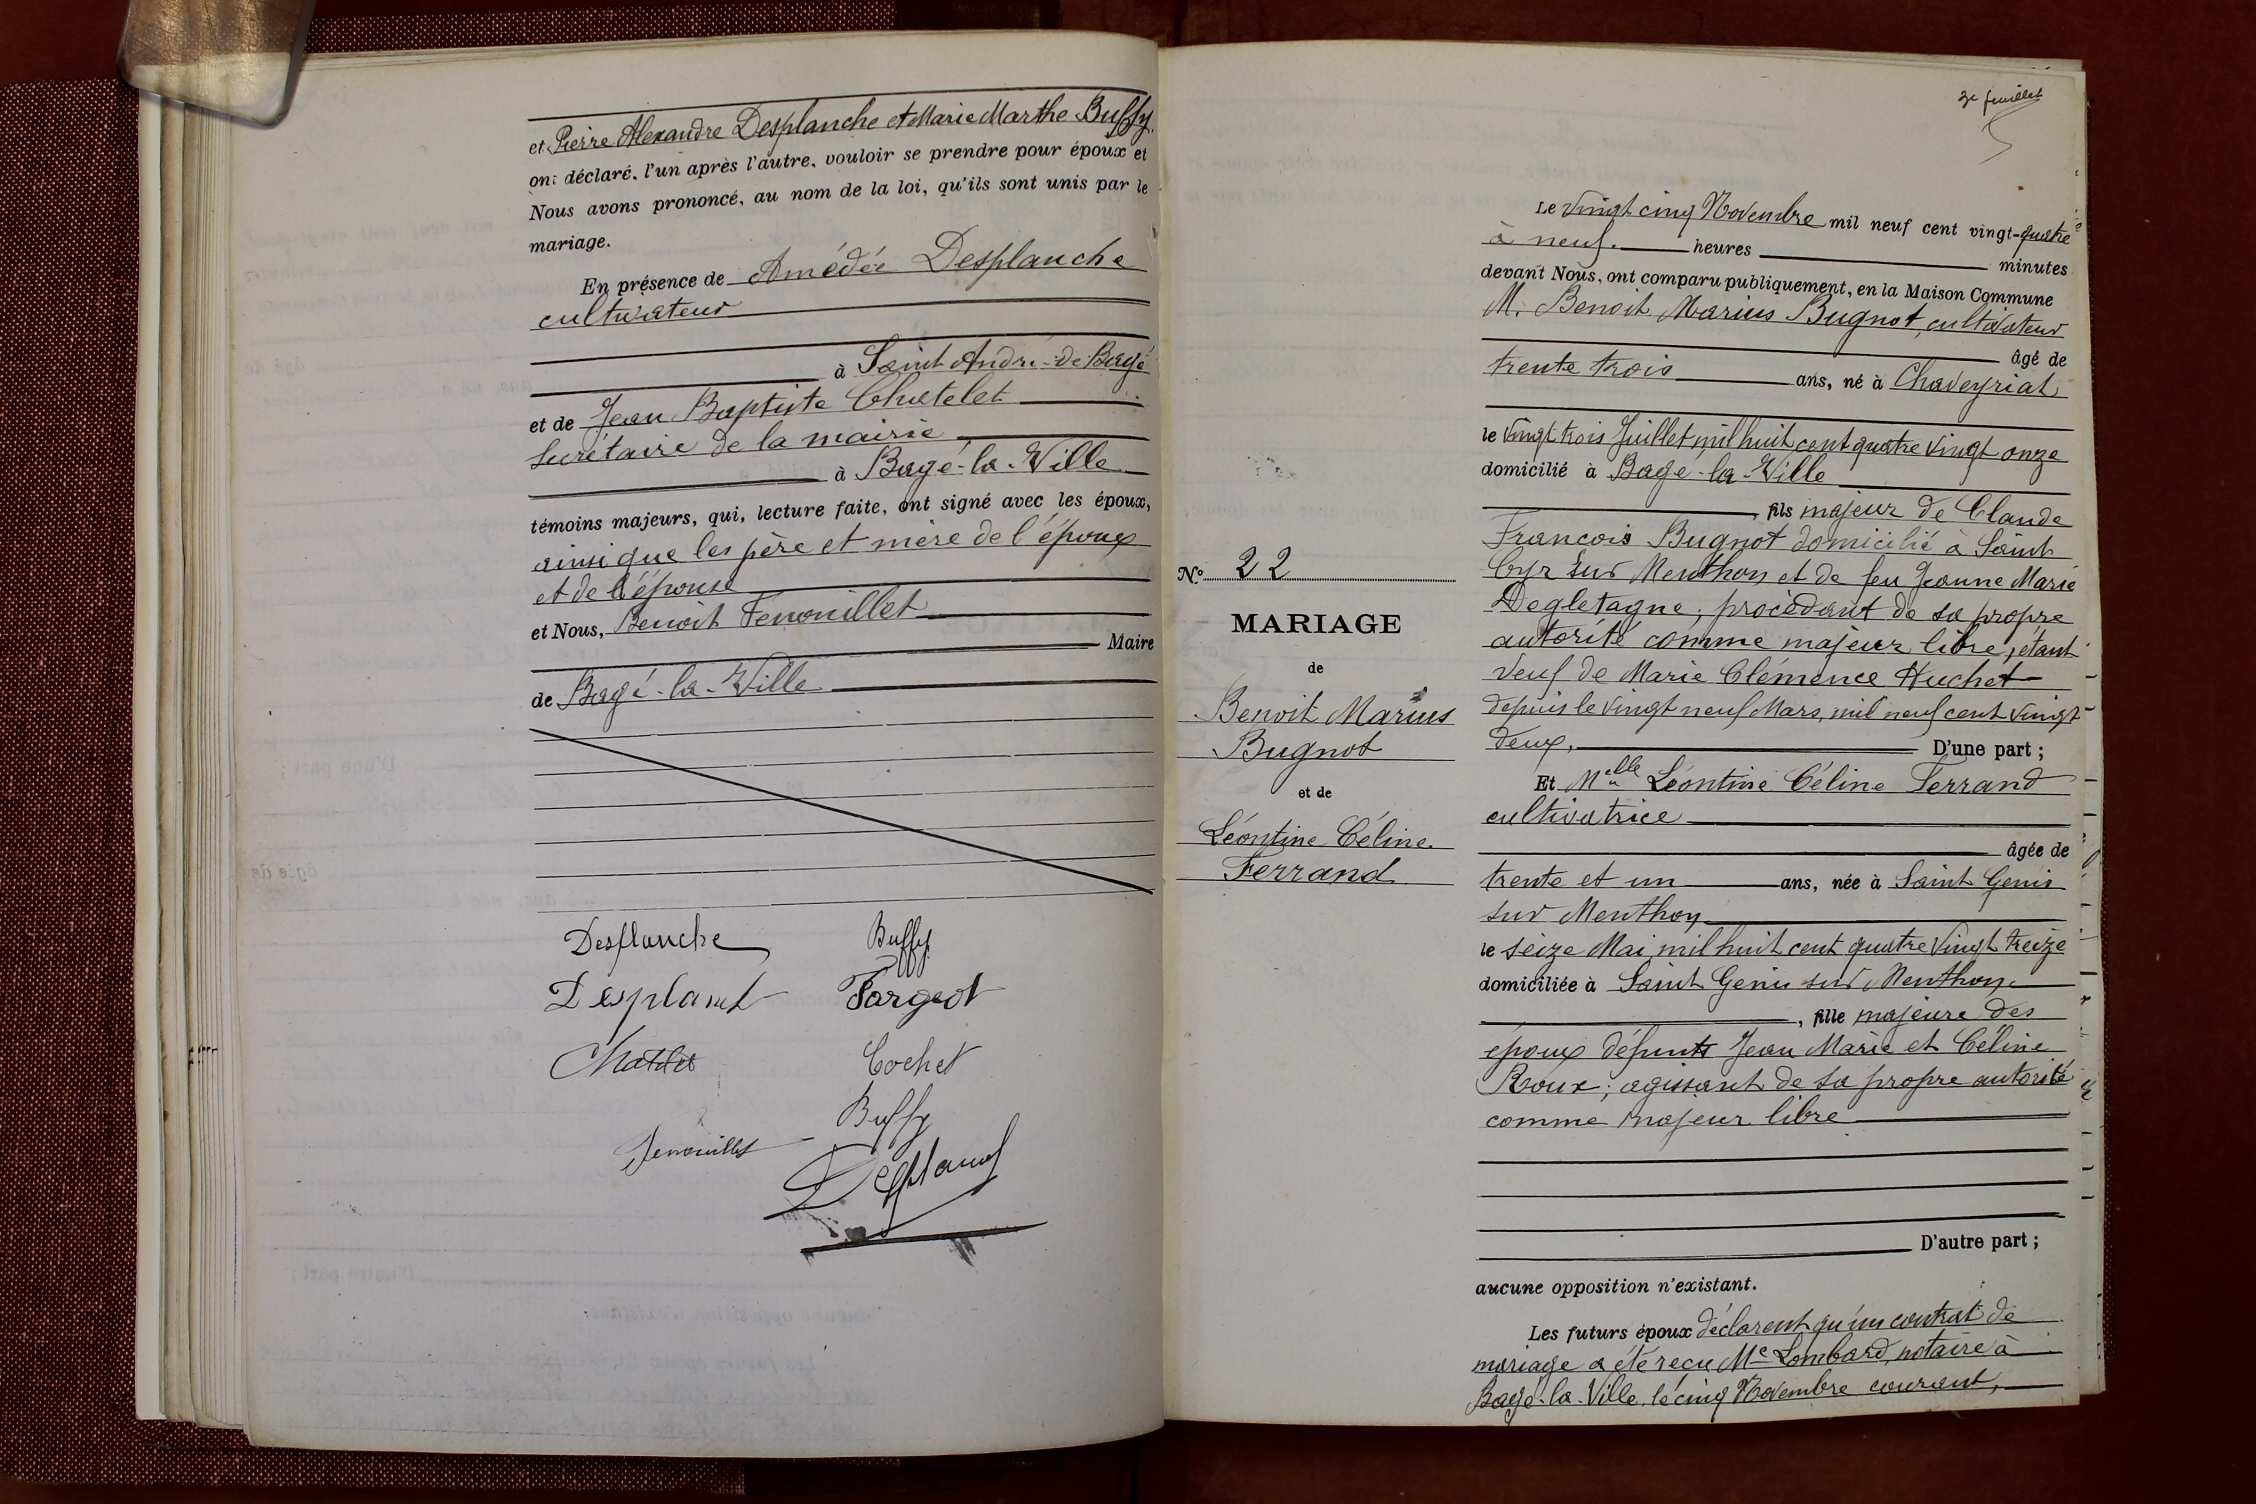 et Pierre Alexandre Desplanche et Marie Marthe Buffy
ont déclaré, l'un après l'autre, vouloir se prendre pour époux et
Nous avons prononcé, au nom de la loi, qu'ils sont unis par le
mariage.
En présence de Amédée Desplanche
cultivateur
à Saint André-de-Bagé
et de Jean Baptiste Chatelet
Secrétaire de la mairie
à Bagé-la-Ville
témoins majeurs, qui, lecture faite, ont signé avec les époux,
ainsi que les père et mère de l'époux
et de l'épouse
et Nous, Benoit Fenouillet
Maire
de Bagé-la-Ville
Desplanche Buffy
Desplanch Fargeot
Chatelet Cochet
Buffy
Fenouillet
Desplanch
2e feuillet
N° 22
MARIAGE
de
Benoit Marius
Bugnot
et de
Léontine Céline
Ferrand
Le vingt cinq Novembre mil neuf cent vingt-quatre
à neuf heures minutes
devant Nous, ont comparu publiquement, en la Maison Commune
M. Benoit Marius Bugnot, cultivateur
âgé de
trente trois ans, né à Chaveyriat
le vingt trois Juillet mil huit cent quatre vingt onze
domicilié à Bagé-la-Ville
, fils majeur de Claude
Francois Bugnot domicilié à Saint
Cyr sur Menthon et de feu Jeanne Marie
Degletagne; procédant de sa propre
autorité comme majeur libre, étant
veuf de Marie Clémence Huchet
depuis le vingt neuf Mars mil neuf cent vingt
deux. D'une part ;
Et Melle Léontine Céline Ferrand
cultivatrice
âgée de
trente et un ans, née à Saint Genis
sur Menthon
le seize Mai mil huit cent quatre vingt treize
domiciliée à Saint Genis sur Menthon
, fille majeure des
époux défunts Jean Marie et Céline
Roux; agissant de sa propre autorité
comme majeur libre
D'autre part ;
aucune opposition n'existant.
Les futurs époux déclarent qu'un contrat de
mariage a été reçu Me Lombard, notaire à
Bagé-la-Ville, le cinq Novembre courant,